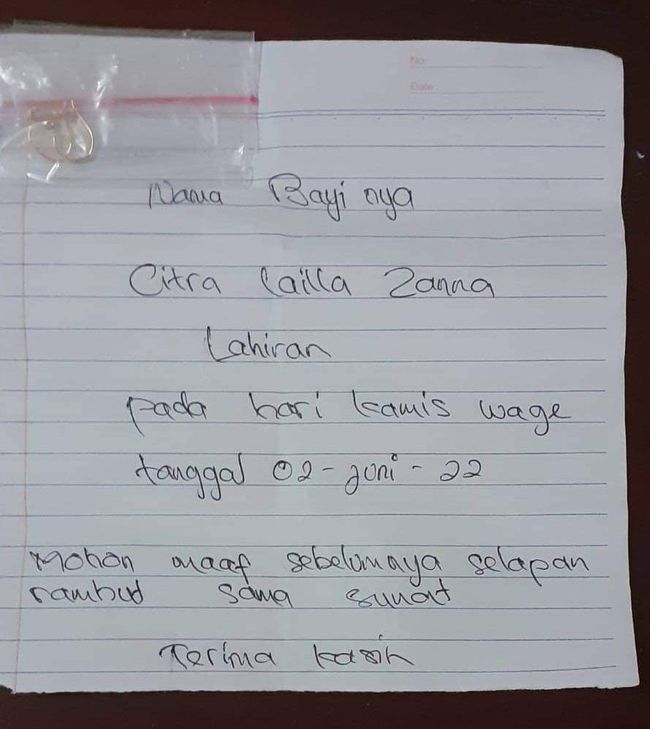 No:
Date:
Nama Bayi nya
Citra lailla Zanna
Lahiran
pada hari kamis wage
tanggal 02-juni-22
Mohon maaf sebelumnya selapan
rambud sama sunat
Terima kasih